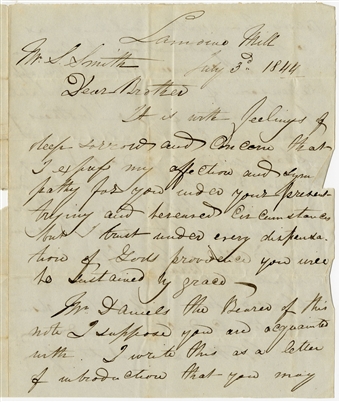 Lamoine Mill
July 3d 1844
Mr. S. Smith
Dear Brother
It is with feelings of
deep sorrow and Concern that
I express my affection and sym
pathy for you under your present
trying and bereaved Circumstances
but I trust under every dispensa
tion of Gods providence you will
be Sustained by grace —
Mr Daniels the Bearer of this
note I suppose you are acquainted
with. I wrote this as a letter
of introduction that you may